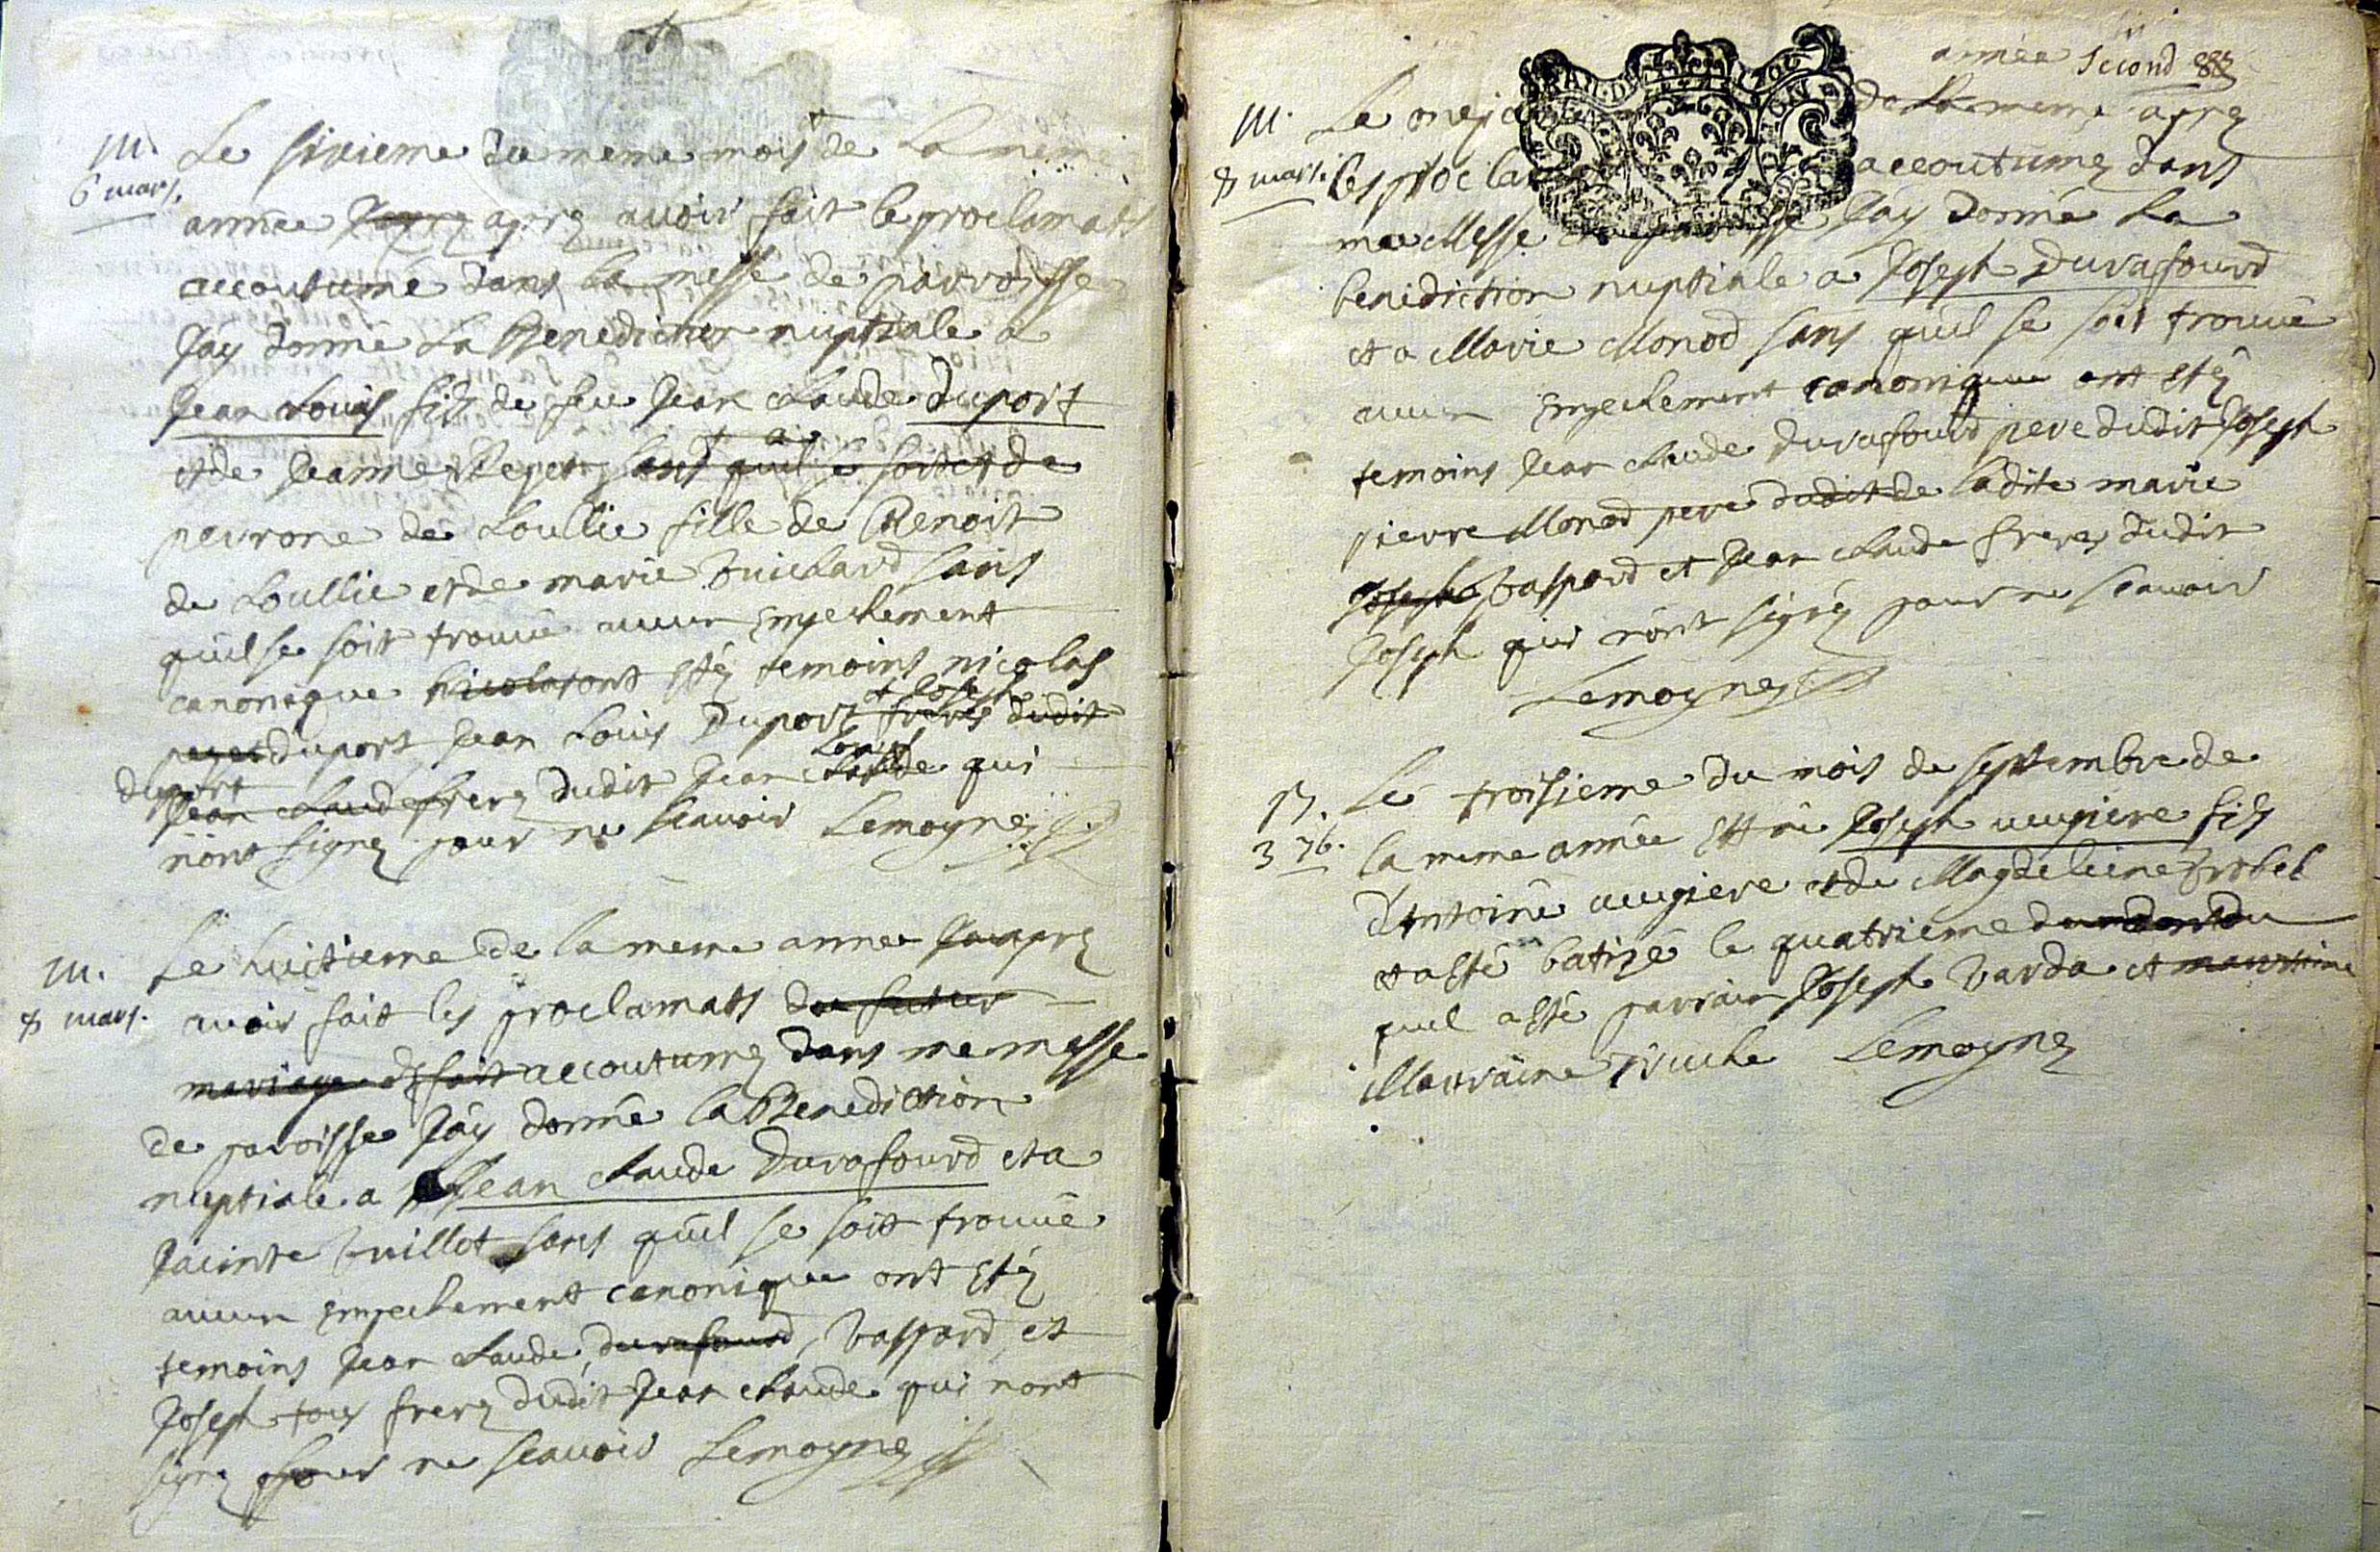 M.
6 mars.
Le sixieme du meme mois de La meme
année Jayez aprez avoir fait le proclamats
accoutumé dans la messe de parroisse
Jay donné La Benediction nuptiale a
Jean Louis fils de feu Jean Claude duport
et de Jeanne sans quil se soit et de a
perrone de Loullie fille de Benoit
de Loullie et de marie buichard sans
quil se soit trouué aucun Empechement
canonique Nicolas ont Estéz temoins nicolas
duport Jean Louis Duport et Joseph freres dudit
duport Jean Claude frerez dudit Jean Claude Louis qui
nont signez pour ne scauoir Lemoynez
M.
8 mars.
Le huitieme de la meme annee aprez
auoir fait les proclamats du futur
mariage accoutumez dans me messe
de paroisse Jay donné la Benediction
nuptiale a Jean Claude Durafourd et a
Jacinte Vuillot sans quil se soit trouué
aucun Empechement canonique ont Estéz
temoins Jean Claude, durafourd, Gaspard, et
Joseph tous frerez dudit Jean Claude qui nont
signez pour ne scauoir Lemoynez
année second 88
M.
8 mars.
Le mesme de La meme aprez
les proclamats accoutumez dans
ma Messe de paroisse Jay donné La
benidiction nuptiale a Joseph Durafourd
et a Marie Monod sans quil se soit trouué
aucun Empechement canonique ont Estéz
temoins Jean Claude Durafourd pere dudit Joseph
pierre Monod pere dudit de ladite marie
Joseph Gaspard et Jean Claude freres dudit
Joseph qui nont signéz pour ne scauoir
Lemoynez
N.
3 7b.
Le troisieme du mois de septembre de
la meme année Est né Joseph augiere fils
d'Antoine augiere et de Magdeleine
et a Esté batizé le quatrieme du
quel a Esté parrain Joseph Varda et
Marraine Lemoynez